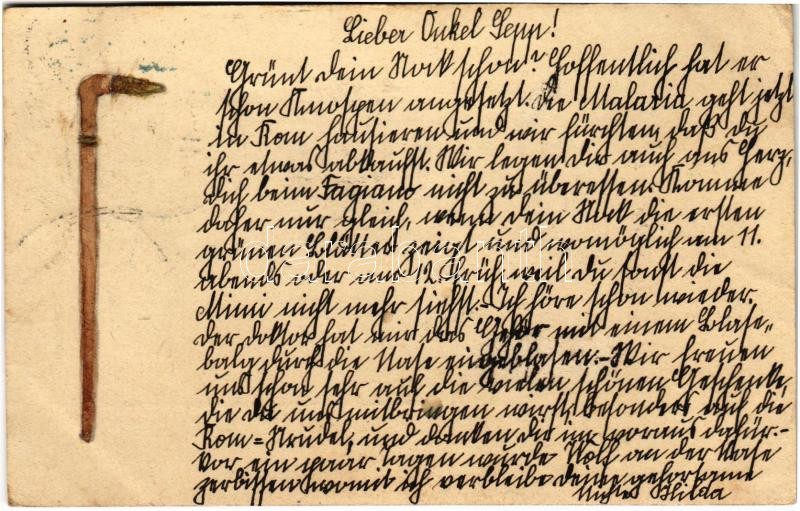 Lieber Onkel Sepp!
Grünt dein Stock schon? Hoffentlich hat er
schon Knospen angesetzt. Die Malaria geht jetzt
in Rom hausieren und wir fürchten, daß du
ihr etwas abkaufst. Wir legen dir auch ans Herz,
dich beim Fagiano nicht zu überessen. Komme
daher nur gleich, wenn dein Stock die ersten
grünen Blätter zeigt und womöglich am 11.
abends oder am 12. früh, weil du sonst die
Mimi nicht mehr siehst. Ich höre schon wieder.
Der Doktor hat mir das Gehör mit einem Blase-
balg durch die Nase eingeblasen. Wir freuen
uns schon sehr auf die vielen schönen Geschenke,
die du uns mitbringen wirst, besonders auf die
Rom=Strudel, und danken dir im voraus dafür.-
Vor ein paar Tagen wurde an der Nase
zerbissen womit ich verbleibe deine gehorsame
Nichte Hilda